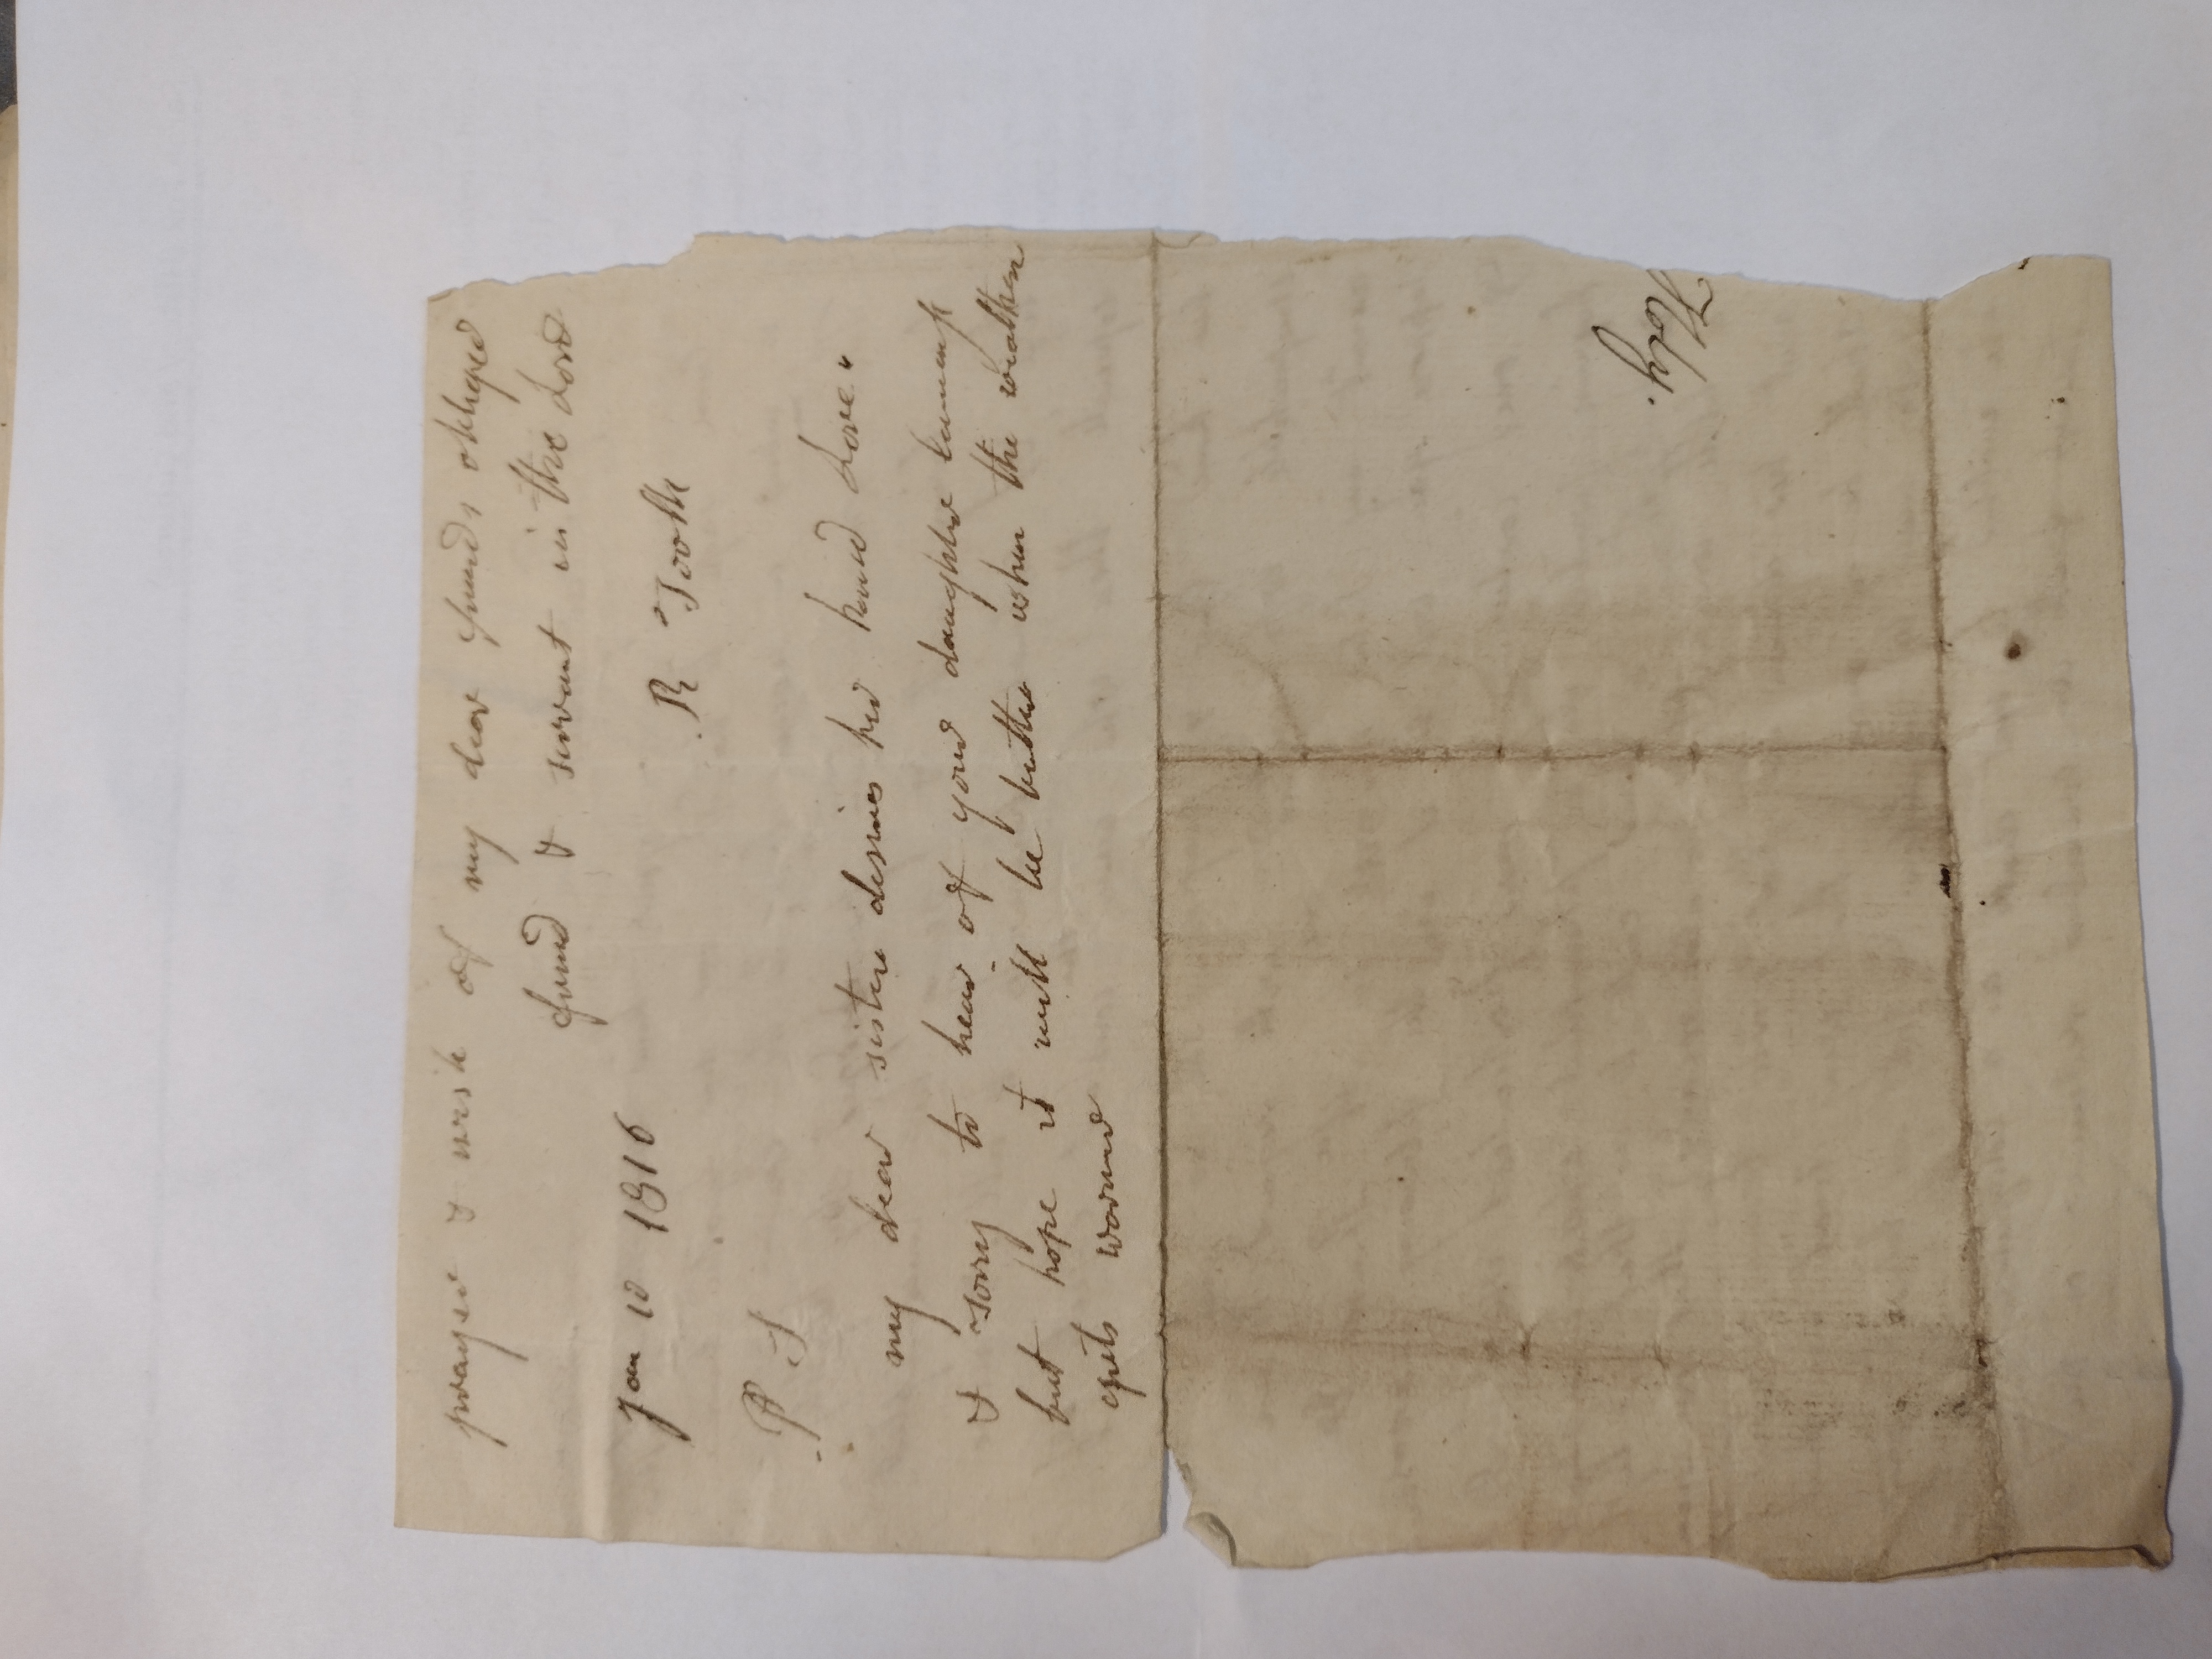 prayer & wish of my dear friends obliged
friend & servant in the Lord
Jan 10 1816
R Tooth
P S
my dear sister desires her kind Love
& sorry to hear of your daughter lameness
but hope it will be better when the weather
gets warmer